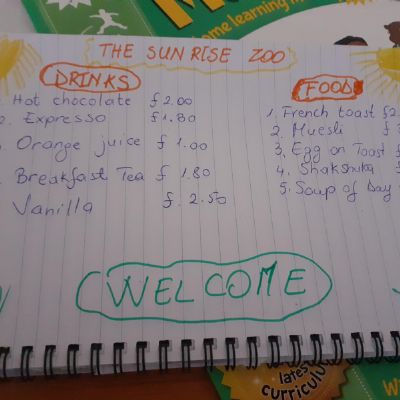 me learning m
THE SUN RISE ZOO
DRINKS
Hot chocolate £ 2.00
2. Expresso £1.80
Orange juice £ 1.00
Breakfast Tea £ 1.80
Vanilla £. 2.50
FOOD
1. French toast £2
2. Muesli £
3. Egg on Toast £
4. Shakshuka £
5. Soup of Day
WELCOME
lates
curriculu